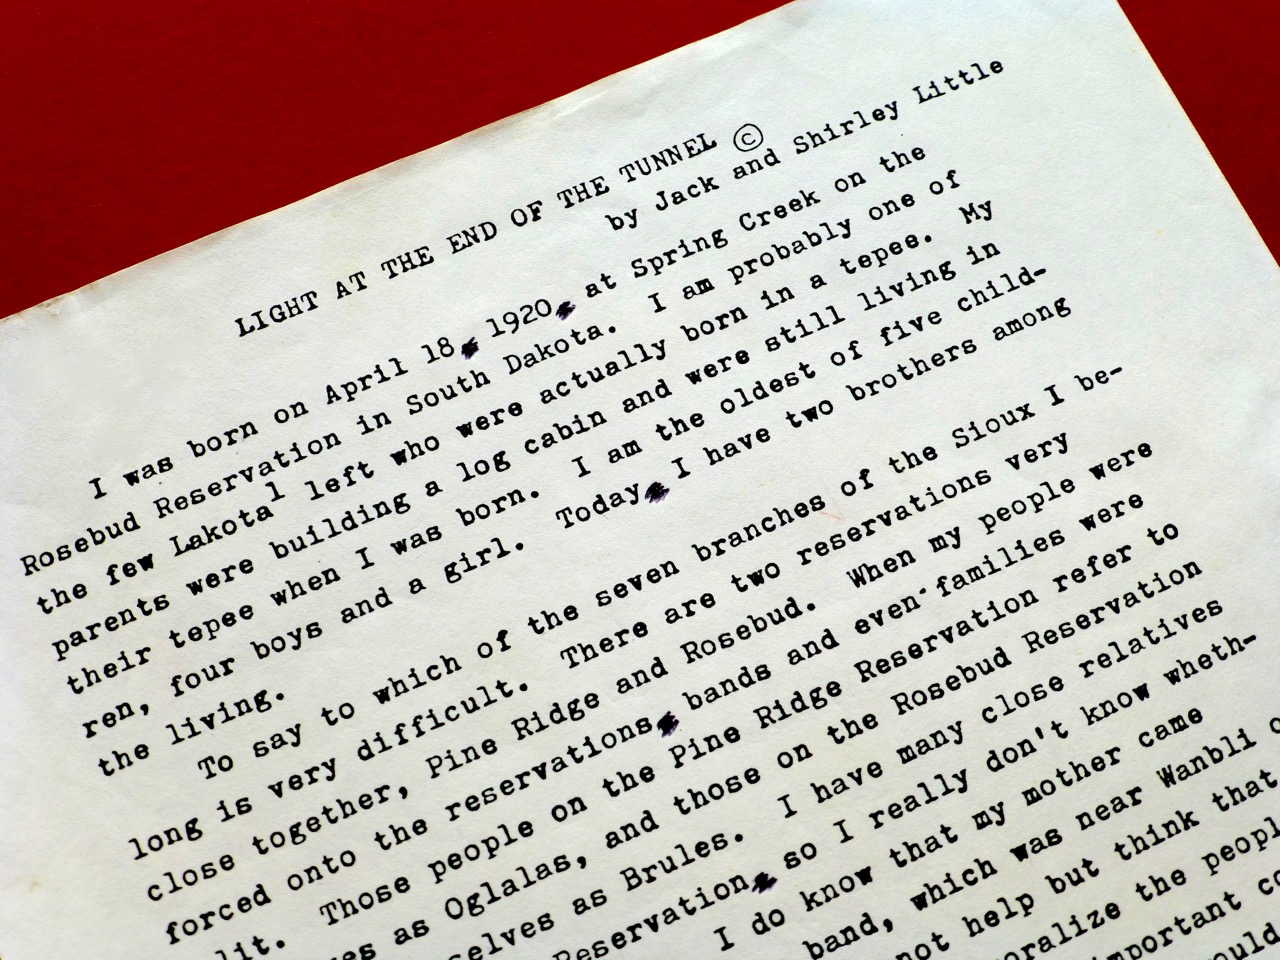 LIGHT AT THE END OF THE TUNNEL ©
by Jack and Shirley Little
I was born on April 18 1920 at Spring Creek on the
Rosebud Reservation in South Dakota. I am probably one of
the few Lakota1 left who were actually born in a tepee. My
parents were building a log cabin and were still living in
their tepee when I was born. I am the oldest of five child-
ren, four boys and a girl. Today I have two brothers among
the living.
To say to which of the seven branches of the Sioux I be-
long is very difficult. There are two reservations very
close together, Pine Ridge and Rosebud. When my people were
forced onto the reservations bands and even families were
lit. Those people on the Pine Ridge Reservation refer to
es as Oglalas, and those on the Rosebud Reservation
selves as Brules. I have many close relatives
Reservation so I really don't know wheth-
I do know that my mother came
band, which was near Wanbli
not help but think that
oralize the peopl
important co
ould